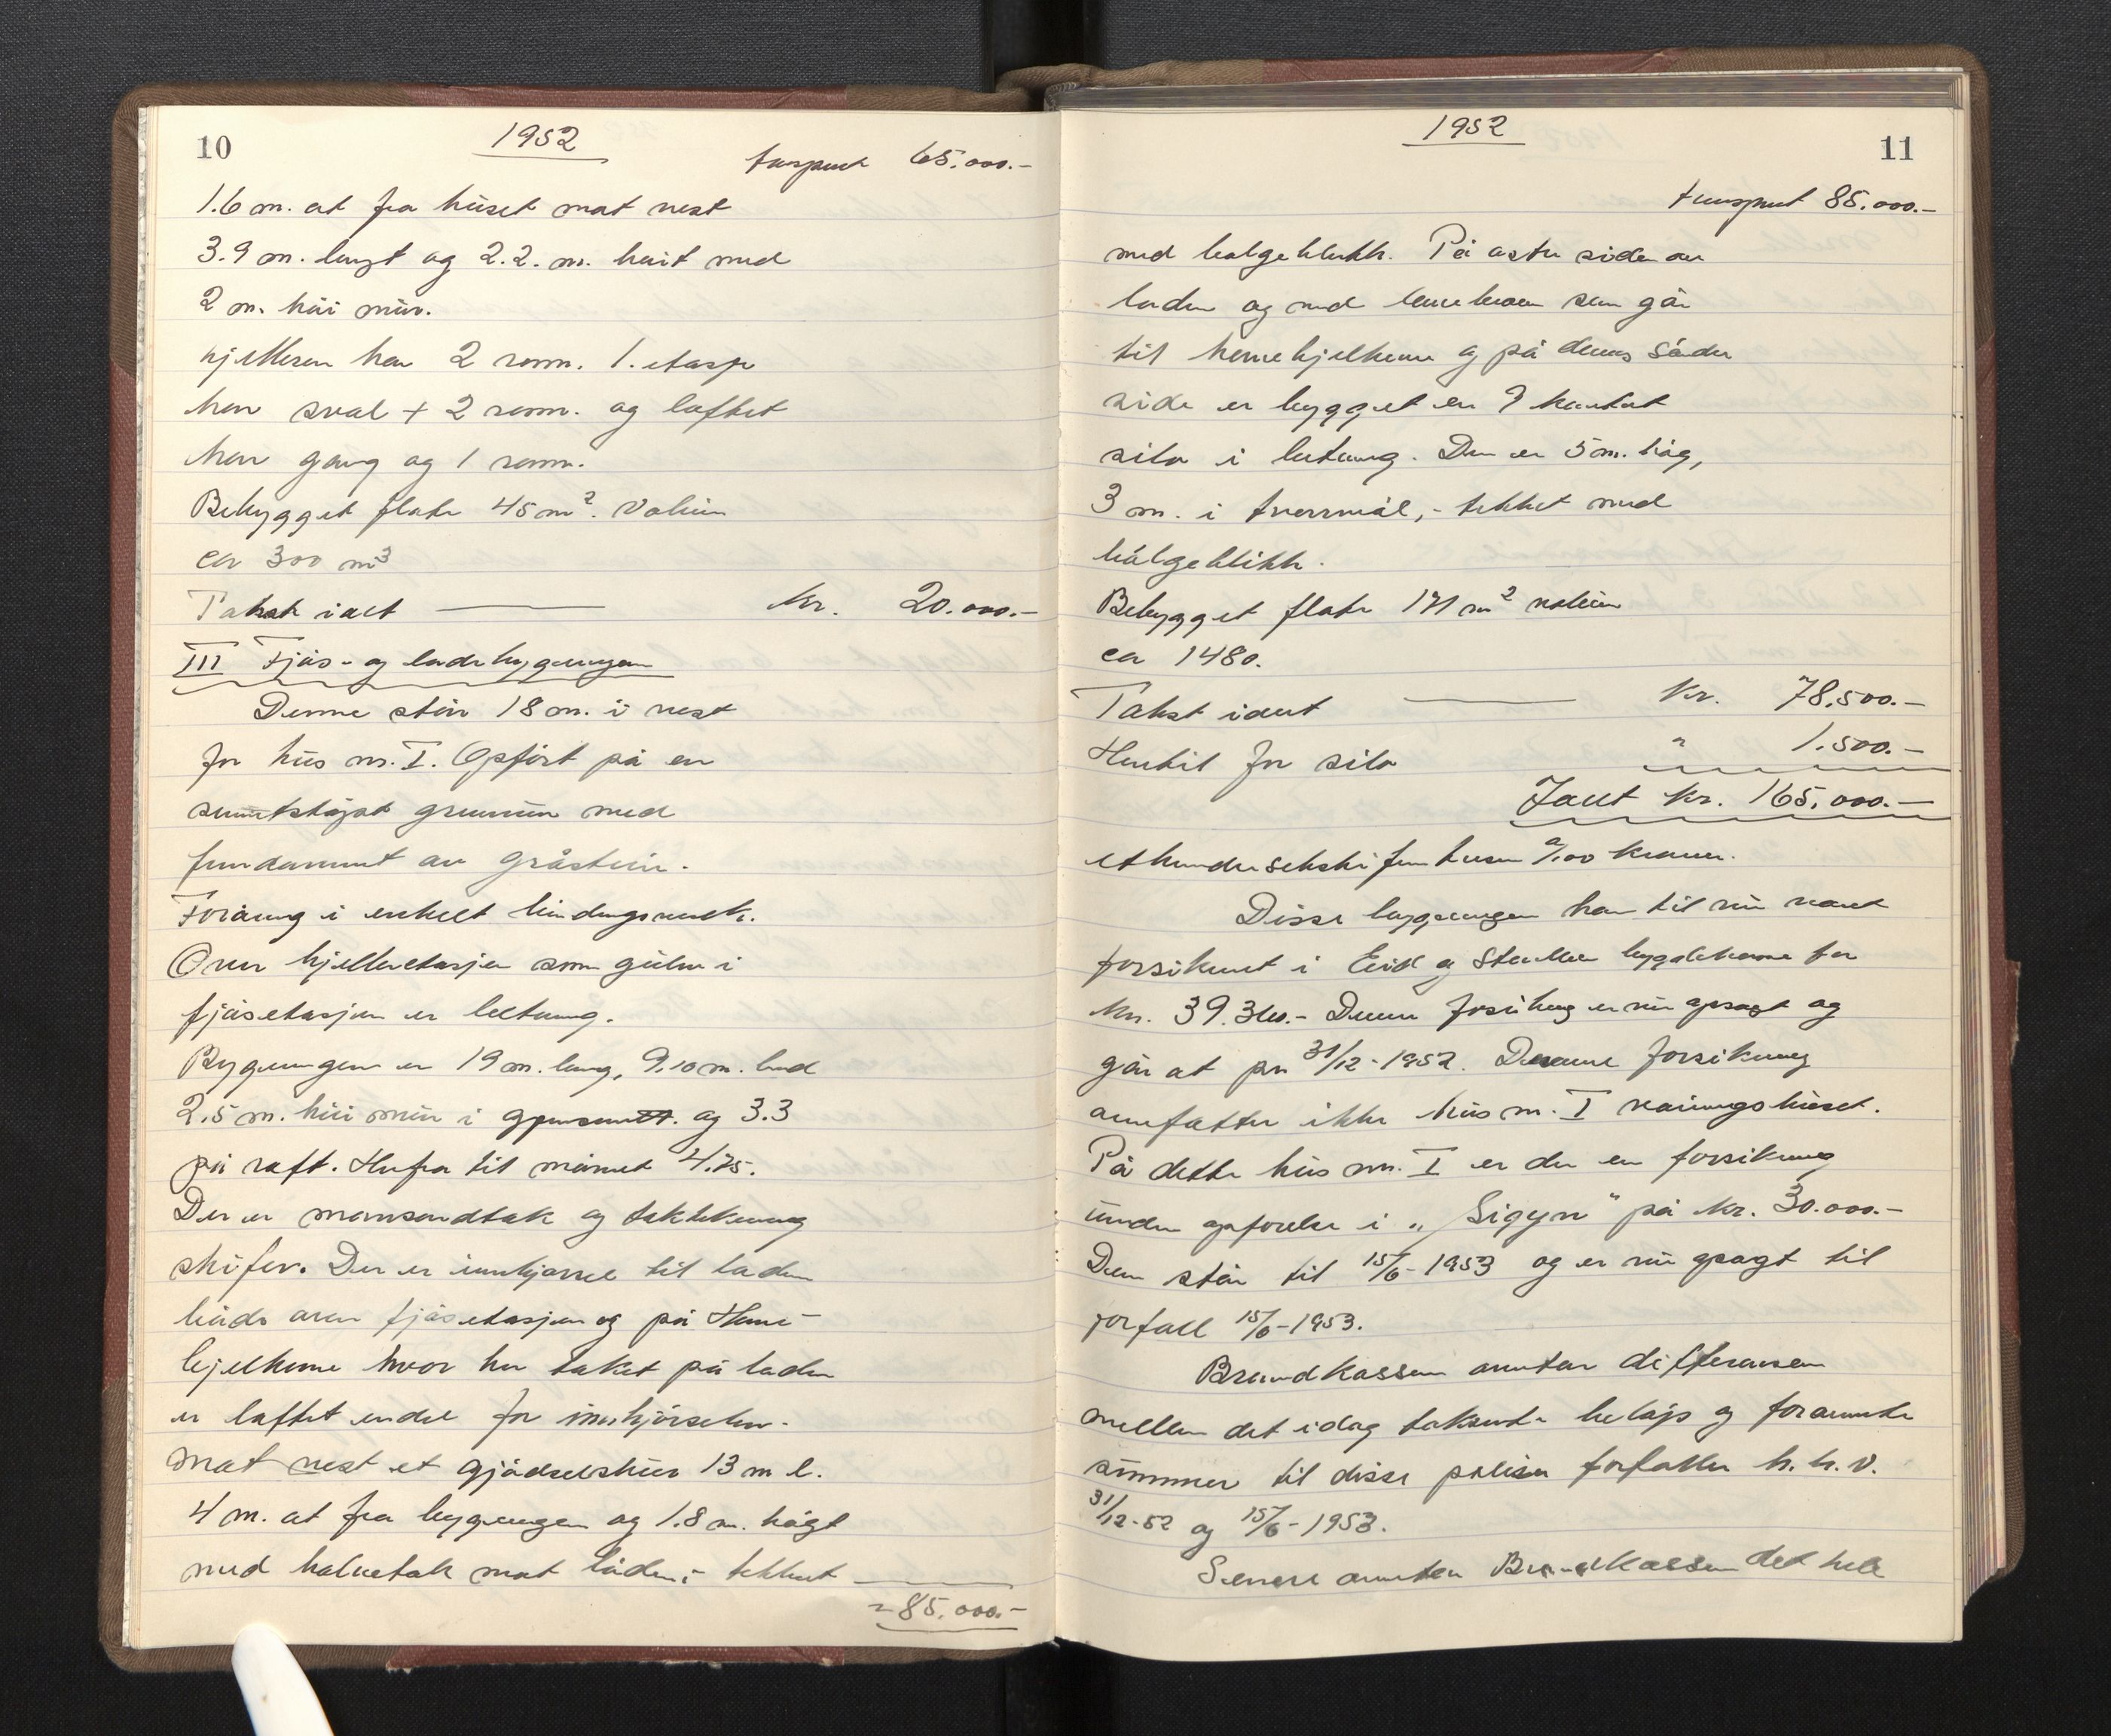 10
1952
transport 65.000.-
1.6 m. ut fra huset mot vest
3.9 m. langt og 2.2. m. høit med
2 m. høi mur.
Kjelleren har 2 rom. 1. etasje
har sval + 2 rom. og loftet
har gang og 1 rom.
Bebygget flate 45 m². Volum
ca 300 m³
Takst ialt — Kr. 20.000.-
III Fjøs- og ladebygningen
Denne står 18 m. i vest
for hus nr. I. Opført på en
grunnmur med
fundament av gråstein.
Forøvrig i enkelt bindingsverk.
Over kjelleretasjen som gulv i
fjøsetasjen er betong.
Bygningen er 19 m. lang, 9.10 m. bred
2.5 m. høi mur i og 3.3
på raft. Herfra til mønet 4.75.
Der er mansardtak og taktekning
skifer. Der er innkjørsel til laden
både over fjøsetasjen og på Heme-
bjelkene hvor her taket på laden
er løftet endel for innkjørselen.
mot vest et gjødselshus 13 m l.
4 m. ut fra bygningen og 1.8 m. høgt
med halvtak mot laden,- tekket
= 85.000.-
1952
11
transport 85.000.-
med bølgeblikk. På østre side av
laden og ved som går
til hemebjelkene og på dens søndre
side er bygget en 9 kantet
silo i betong. Den er 5 m. høg,
3 m. i tverrmål,- tekket med
bølgeblikk.
Bebygget flate 171 m² volum
ca 1480.
Takst ialt — Kr. 78.500.-
Hertil for silo " 1.500.-
Ialt kr. 165.000.-
ethundresekstifemtusen 0/00 kroner.
Disse bygninger har til nu vært
forsikret i Eid og bygdekasse for
kr. 39.360.- Denne forsikring er nu opsagt og
går ut pr 31/12-1952. Denne forsikring
omfatter ikke hus nr. I våningshuset.
På dette hus nr. I er der en forsikring
under opførelse i „Sigyn" på kr. 30.000.-
Den står til 15/6-1953 og er nu opsagt til
forfall 15/6-1953.
Brandkassen overtar differansen
mellem det idag takserte beløp og forannevnte
summer til disse poliser forfaller h.h.v.
31/12-52 og 15/6-1953.
Senere overtar Brandkassen det hele